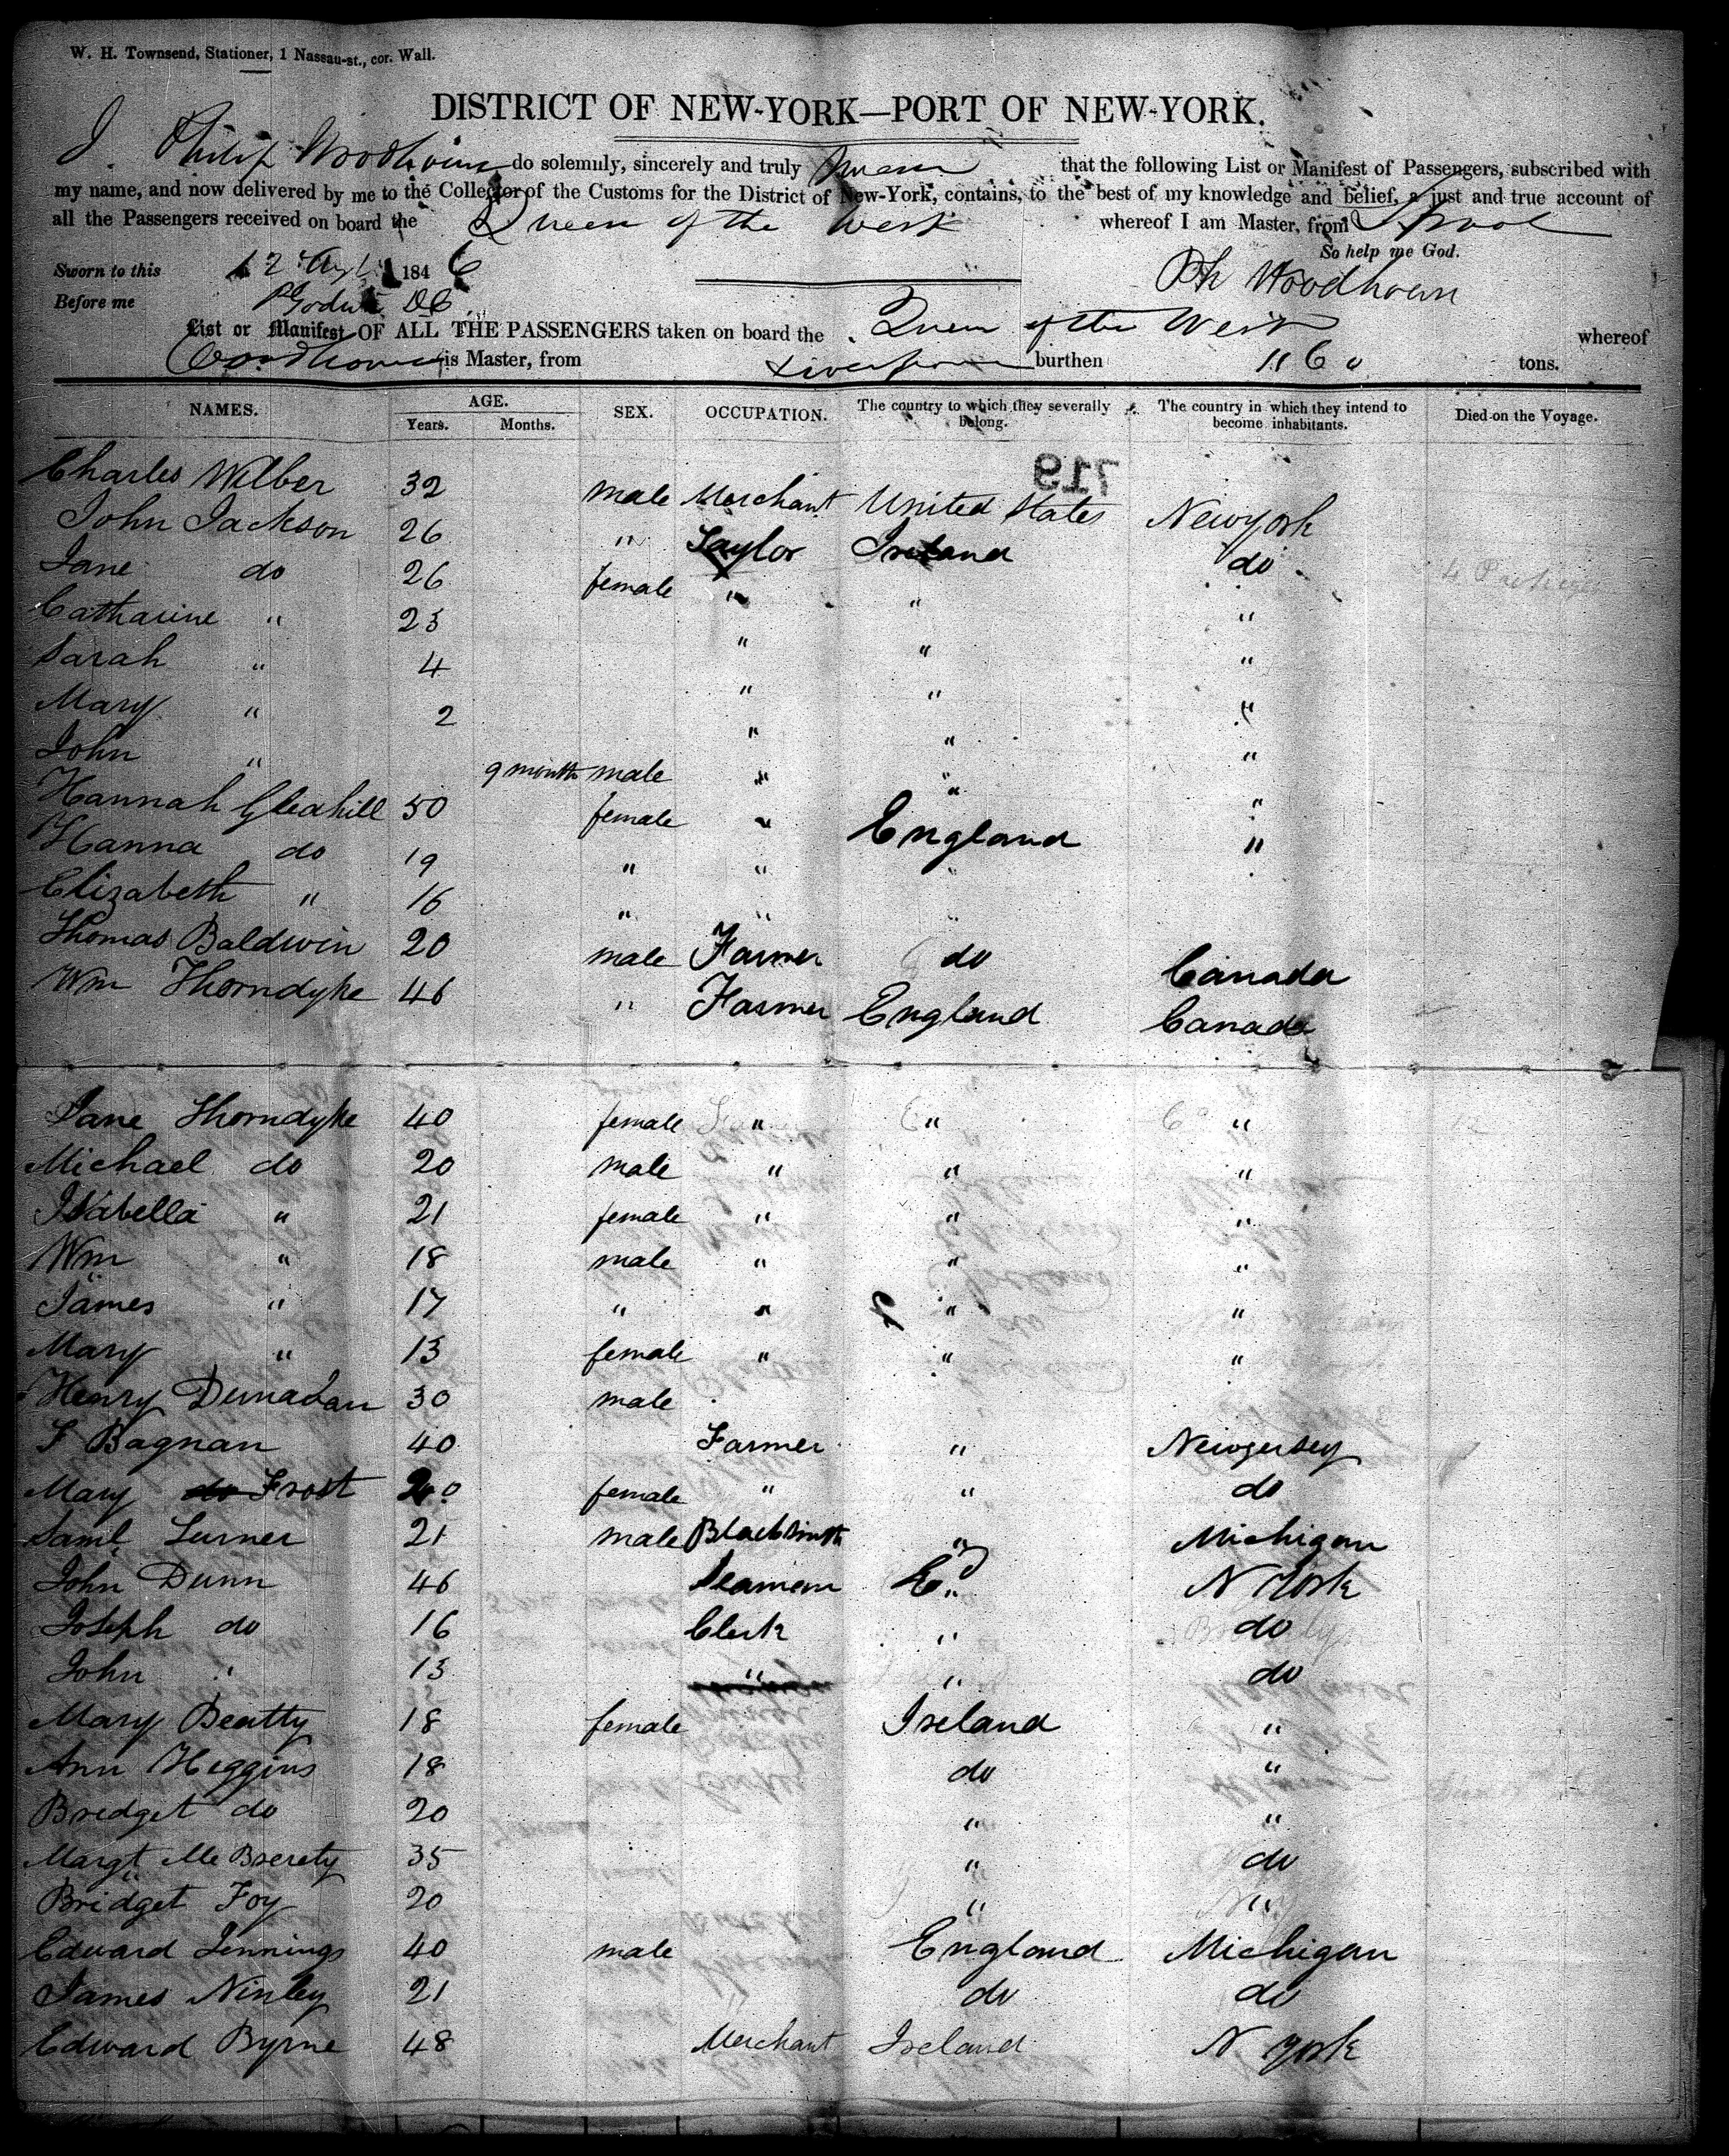 W. H. Townsend, Stationer, 1 Nassau-st., cor. Wall.
DISTRICT OF NEW-YORK—PORT OF NEW-YORK.
I. Philip Woodhouse do solemnly, sincerely and truly Swear that the following List or Manifest of Passengers, subscribed with
my name, and now delivered by me to the Collector of the Customs for the District of New-York, contains, to the best of my knowledge and belief, a just and true account of
all the Passengers received on board the Queen of the West whereof I am Master, from Lpool
So help me God.
Sworn to this 12 Augt 1846 Ph Woodhouse
Before me
List or Manifest OF ALL THE PASSENGERS taken on board the Queen of the West whereof
Woodhouse is Master, from Liverpool burthen 1160 tons.
NAMES. AGE. SEX. OCCUPATION. The country to which they severally belong. The country in which they intend to become inhabitants. Died on the Voyage.
Years. Months.
719
Charles Wilber 32 male Merchant United States Newyork
John Jackson 26 " Taylor Ireland do
Jane do 26 female " " "
Catharine " 25 " " "
Sarah " 4 " " "
Mary " 2 " " "
John " 9 month male " " "
Hannah Gleahill 50 female " England "
Hanna do 19 " " "
Elizabeth " 16 " " "
Thomas Baldwin 20 male Farmer do Canada
Wm Thorndyke 46 " Farmer England Canada
Jane Thorndyke 40 female " " "
Michael do 20 male " " "
Isabella " 21 female " " "
Wm " 18 male " " "
James " 17 " " " "
Mary " 13 female " " "
Henry Dunadan 30 male
F Bagnan 40 Farmer " Newjersey
Mary do Frost 20 female " " do
Saml Turner 21 male Blacksmith " Michigan
John Dunn 46 Seaman Ed N York
Joseph do 16 Clerk " do
John " 13 " " do
Mary Beatty 18 female Ireland "
Ann Higgins 18 do "
Bridget do 20 " "
Margt Mc Brerety 35 " do
Bridget Foy 20 " "
Edward Jennings 40 male England Michigan
James Ninley 21 do do
Edward Byrne 48 Merchant Ireland N York